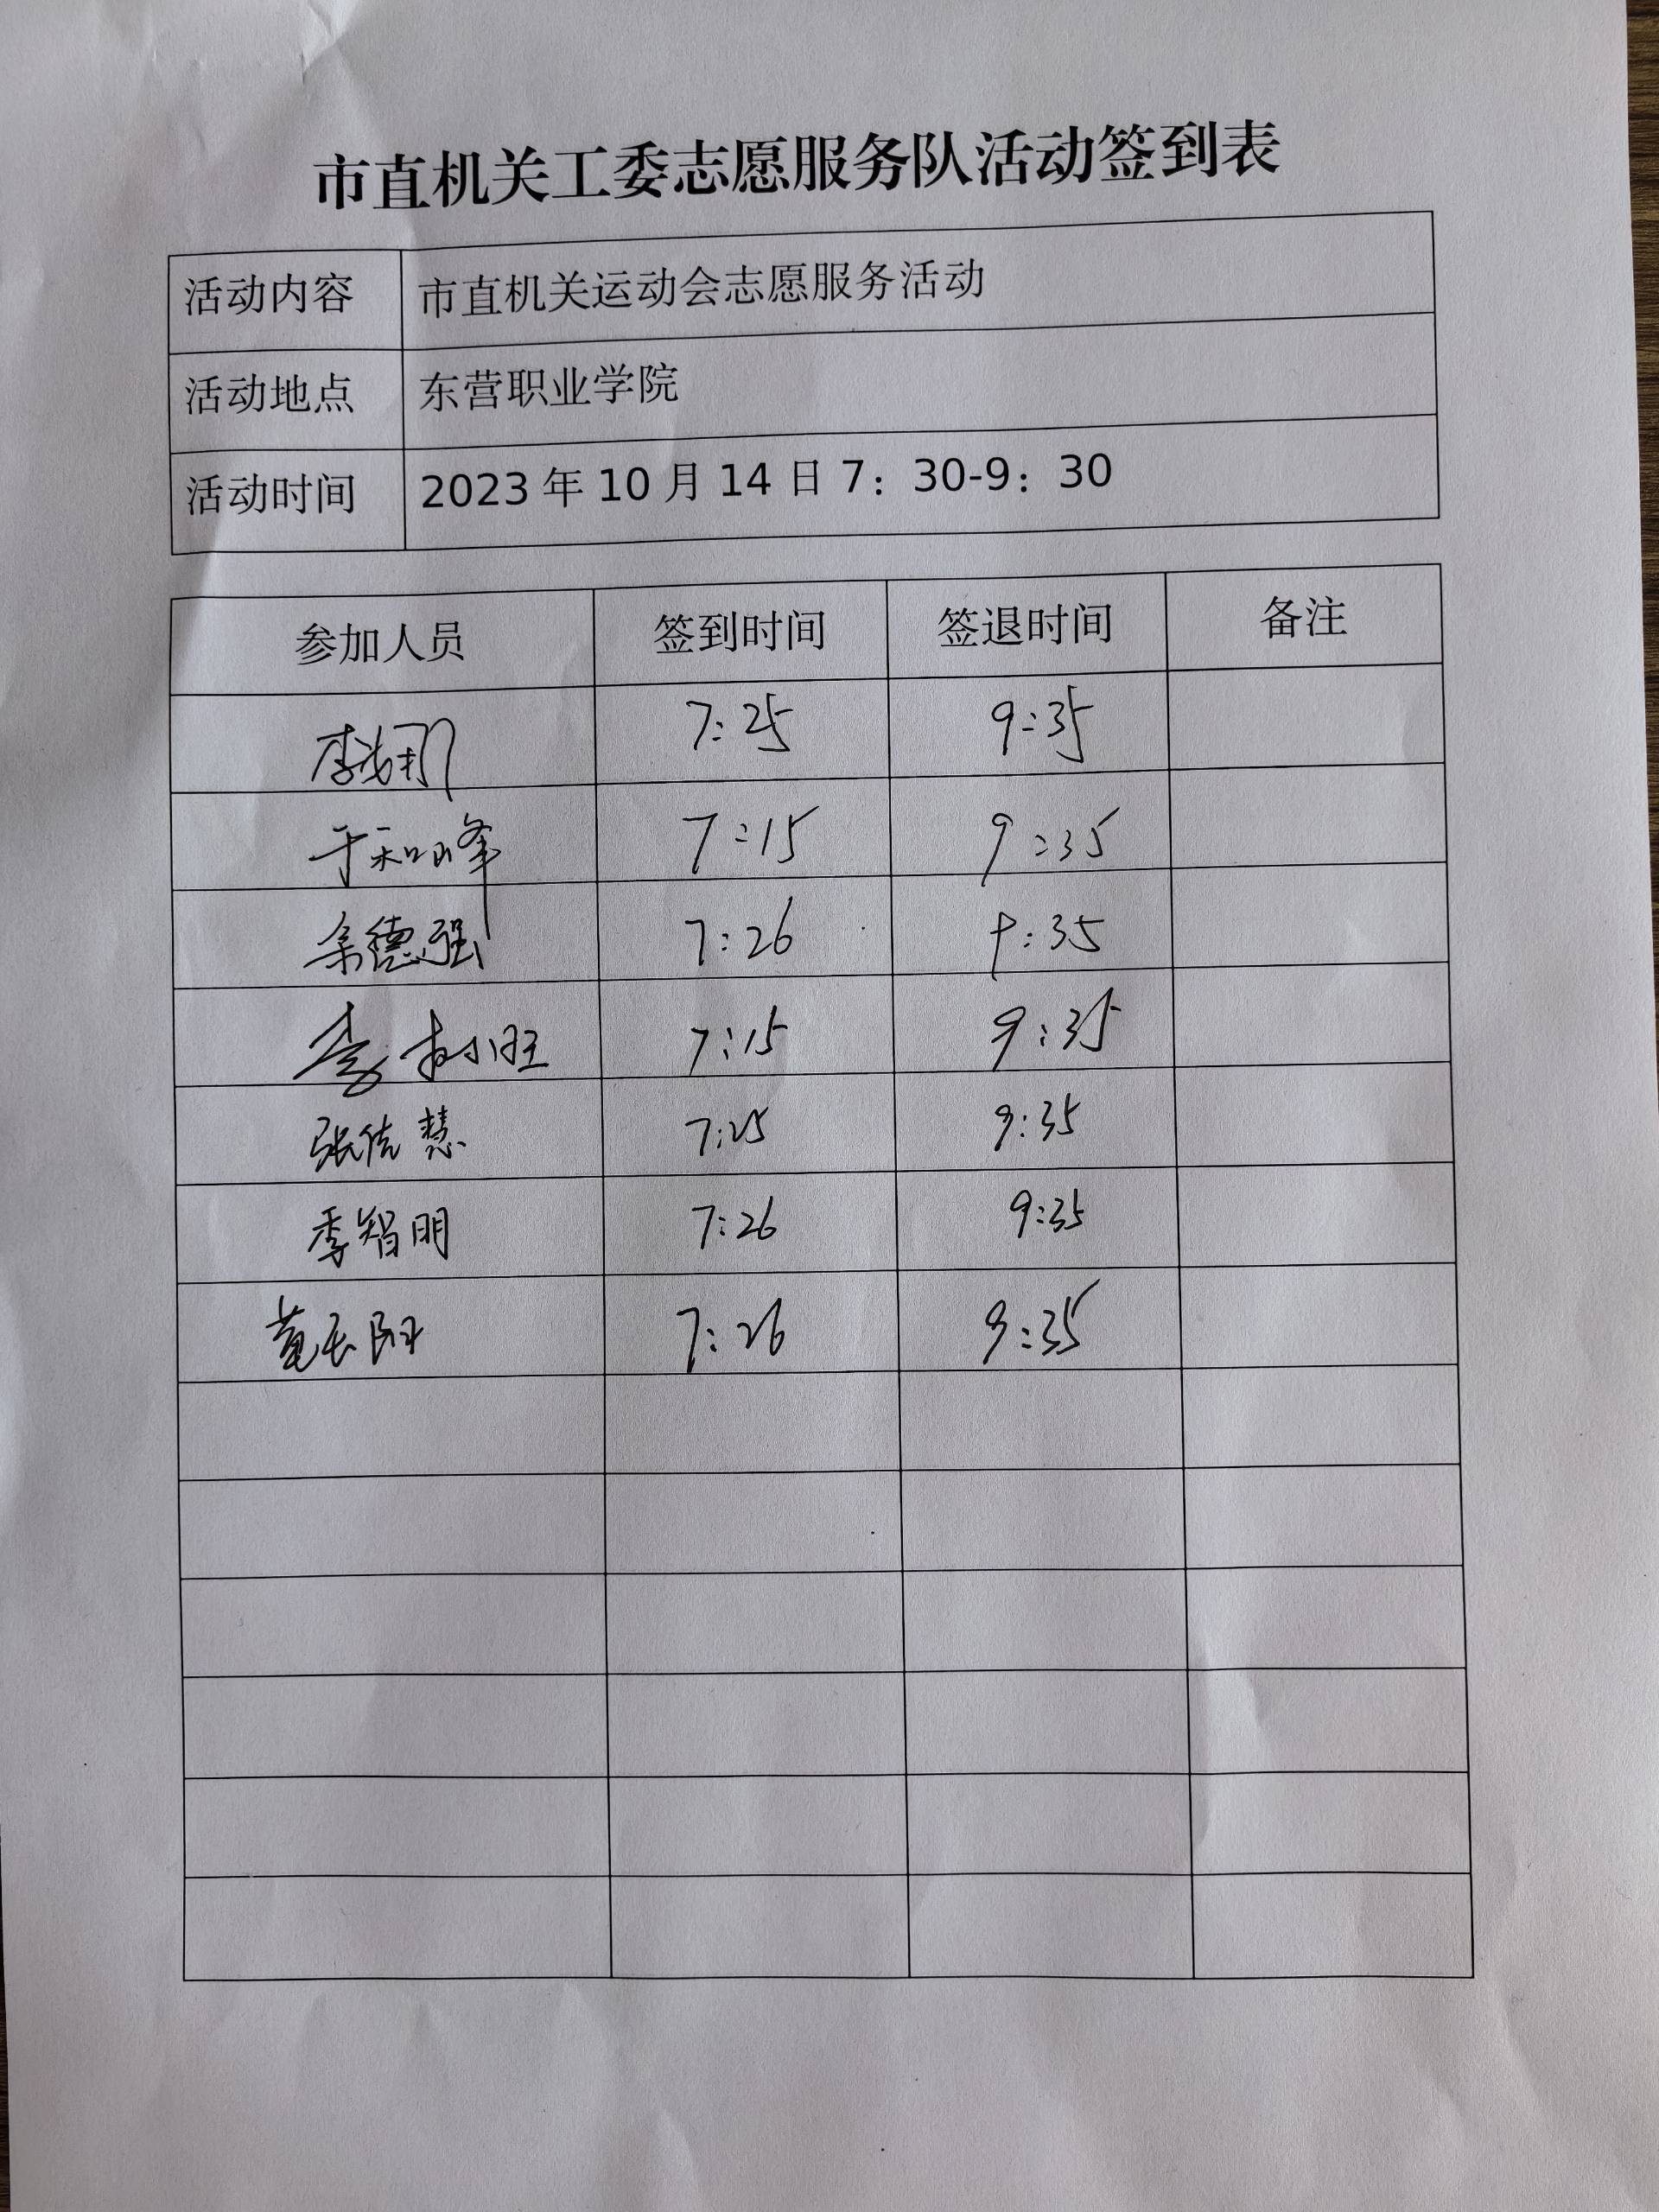 市直机关工委志愿服务队活动签到表
活动内容 市直机关运动会志愿服务活动
活动地点 东营职业学院
活动时间 2023年10月14日7：30-9：30
参加人员 签到时间 签退时间 备注
7:25 9:35
于和峰 7:15 9:35
余德强 7:26 9:35
李 7:15 9:35
张佳慧 7:25 9:35
季智明 7:26 9:35
7:26 9:35